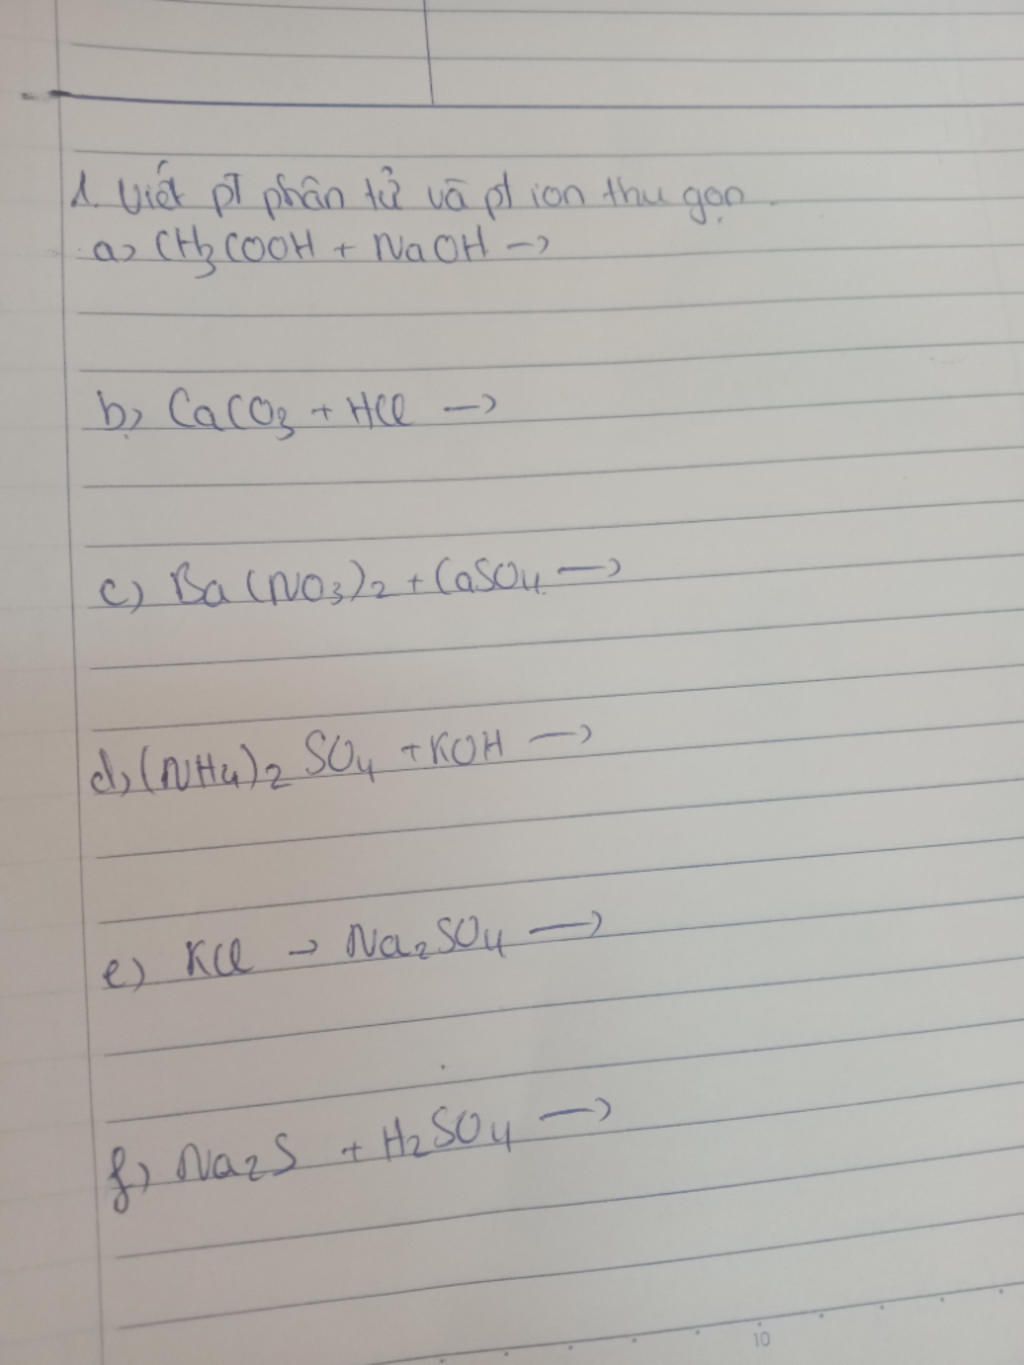 1. Viết pt phân tử và pt ion thu gọn.
a, CH3COOH + NaOH →
b, CaCO3 + HCl →
c) Ba(NO3)2 + CaSO4 →
d, (NH4)2 SO4 + KOH →
e) KCl → Na2SO4 →
f) Na2S + H2SO4 →
10